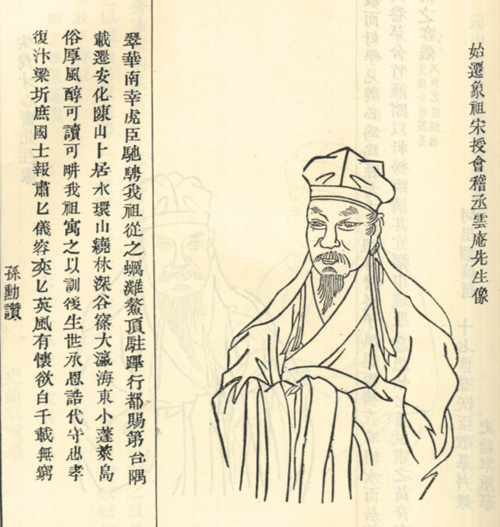 始遷象祖宋授會稽丞雲庵先生像
翠華南幸虎臣馳騁我祖從之蠣灘鰲頂駐蹕行都賜第台隅
載遷安化陳山卜居水環山繞林深谷窱大瀛海東小蓬萊島
俗厚風醇可讀可畊我祖寓之以訓後生世承恩誥代守忠孝
復汴梁圻庶國士報肅匕儀容奕匕英風有懷欲白千載無窮
孫勳讚